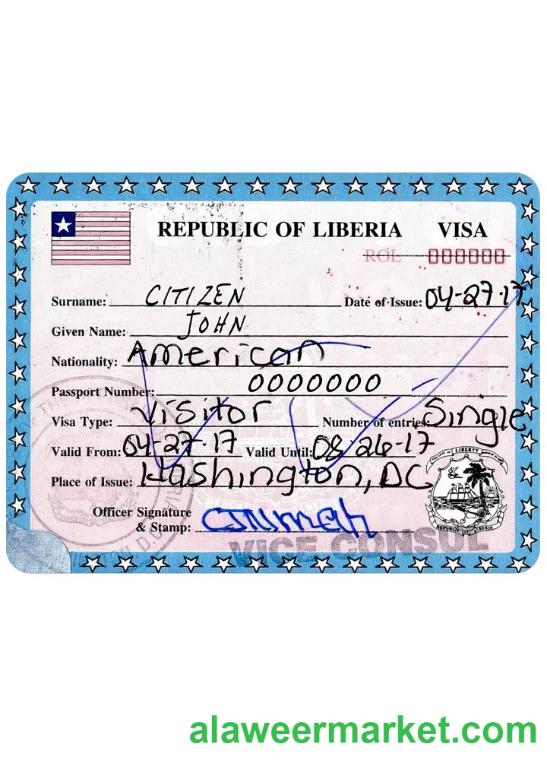 REPUBLIC OF LIBERIA VISA
ROL 000000
Surname: CITIZEN Date of Issue: 04-27-17
Given Name: JOHN
Nationality: American
Passport Number: 0000000
Visa Type: Visitor Number of entries: Single
Valid From: 04-27-17 Valid Until: 08-26-17
Place of Issue: Washington, DC
Officer Signature
& Stamp:
VICE CONSUL
LIBERTY
REPUBLIC OF LIBERIA
alaweermarket.com